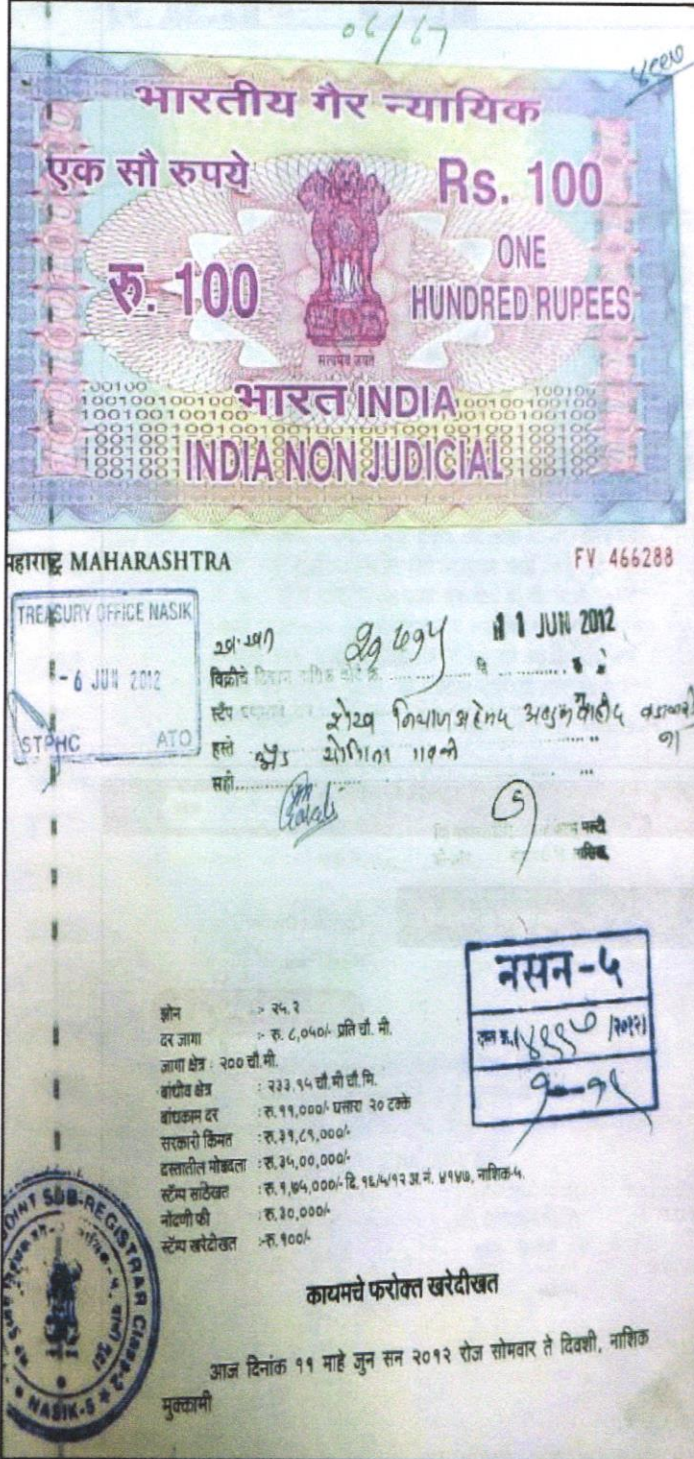 भारतीय गैर न्यायिक
एक सौ रुपये
Rs. 100
रु. 100
ONE
HUNDRED RUPEES
सत्यमेव जयते
भारत INDIA
INDIA NON JUDICIAL
महाराष्ट्र MAHARASHTRA
FV 466288
TREASURY OFFICE NASIK
- 6 JUN 2012
STPHC ATO
11 JUN 2012
विक्रीचे
स्टॅंप
हस्ते
सही
नाशिक
नसन-५
झोन :- २५.२
दर जागा :- रु. ८,०५०/- प्रति चौ. मी.
जागा क्षेत्र : २०० चौ.मी.
बांधीव क्षेत्र : २३३.१५ चौ.मी चौ.मि.
बांधकाम दर : रु.११,०००/- घसारा २० टक्के
सरकारी किंमत : रु.३१,८१,०००/-
दस्तातील मोबदला : रु.३५,००,०००/-
स्टॅम्प साठेखत : रु.१,७५,०००/- दि.१६/५/१२ अ.नं. ४१५७, नाशिक-५.
नोंदणी फी : रु.३०,०००/-
स्टॅम्प खरेदीखत :-रु.१००/-
JOINT SUB-REGISTRAR Class-2
NASIK-5
कायमचे फरोक्त खरेदीखत
आज दिनांक ११ माहे जुन सन २०१२ रोज सोमवार ते दिवशी, नाशिक
मुक्कामी